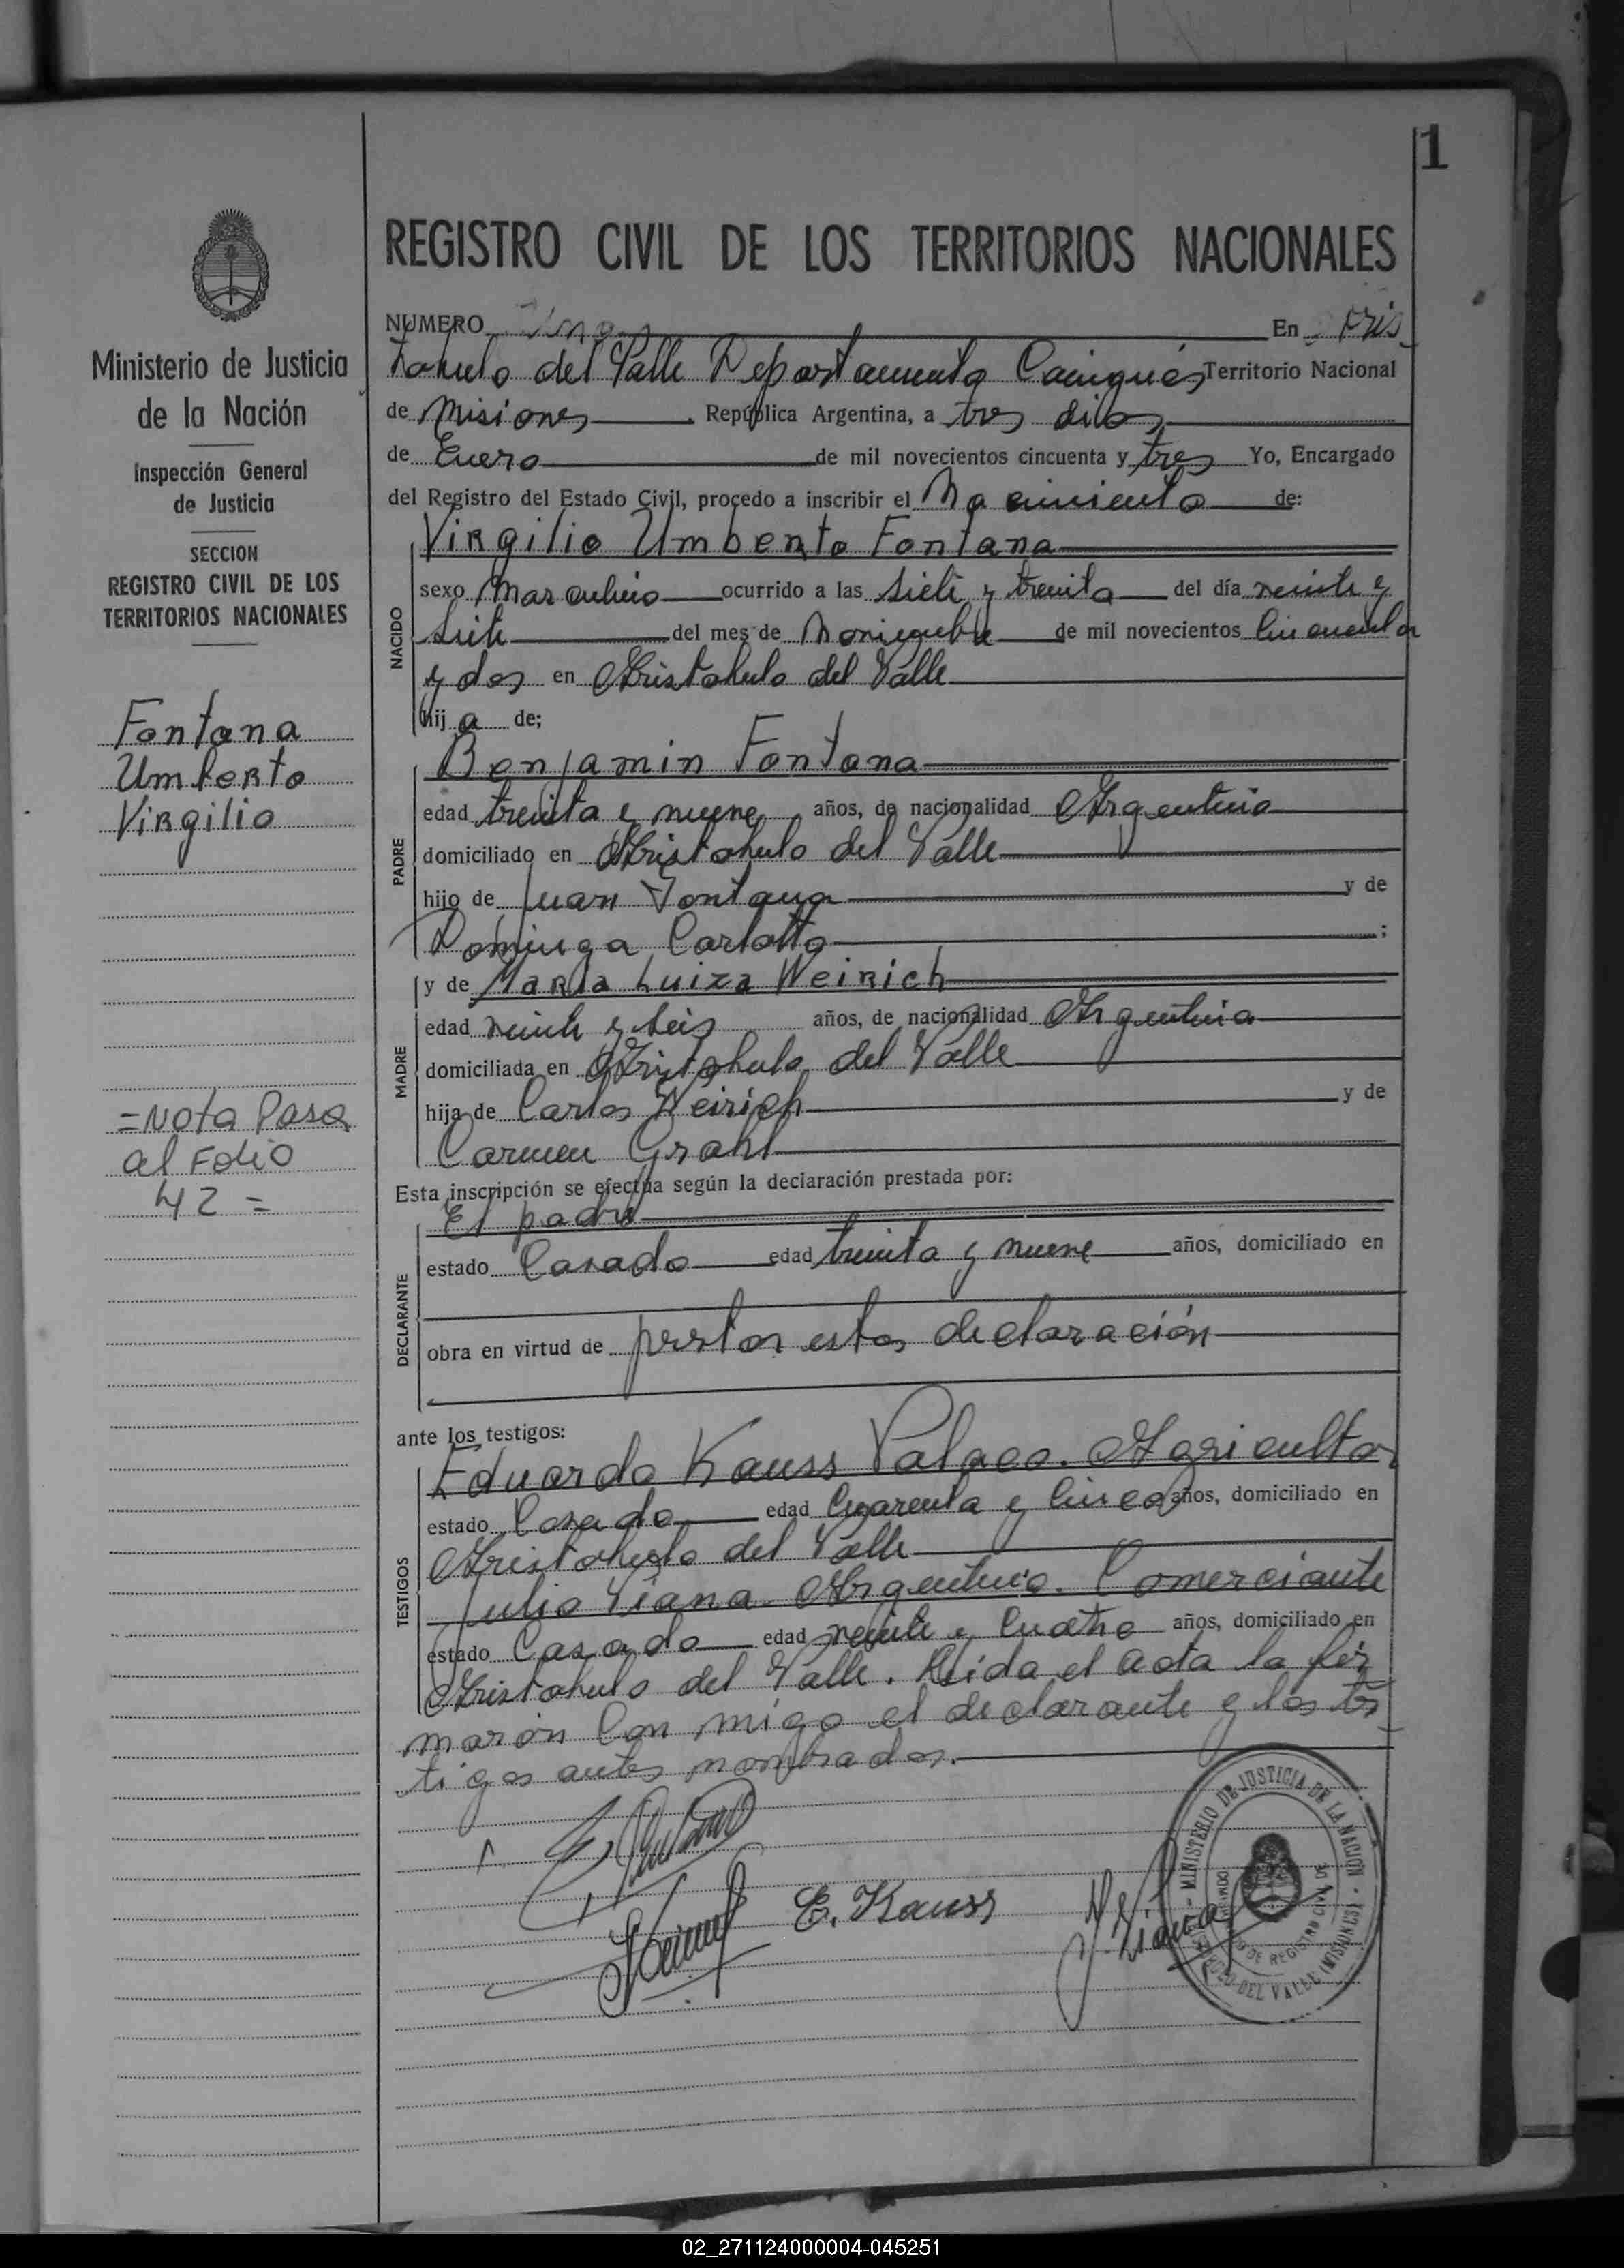 1
Ministerio de Justicia
de la Nación
Inspección General
de Justicia
SECCION
REGISTRO CIVIL DE LOS
TERRITORIOS NACIONALES
Fontana
Umberto
Virgilio
=Nota Pasa
al Folio
42 =
REGISTRO CIVIL DE LOS TERRITORIOS NACIONALES
NUMERO Uno En Aris
tobulo del Valle Departamento Cainguás Territorio Nacional
de Misiones República Argentina, a tres dias
de Enero de mil novecientos cincuenta y tres Yo, Encargado
del Registro del Estado Civil, procedo a inscribir el Nacimiento de:
NACIDO
Virgilio Umberto Fontana
sexo Masculino ocurrido a las siete y treinta del día veinte y
siete del mes de Noviembre de mil novecientos cincuenta
y dos en Aristobulo del Valle
hij o de;
PADRE
Benjamin Fontana
edad treinta y nueve años, de nacionalidad Argentino
domiciliado en Aristobulo del Valle
hijo de Juan Fontana y de
Dominga Carlotto ;
MADRE
y de Maria Luiza Weirich
edad veinte y seis años, de nacionalidad Argentina
domiciliada en Aristobulo del Valle
hija de Carlos Weirich y de
Carmen Grahl
Esta inscripción se efectúa según la declaración prestada por:
DECLARANTE
El padre
estado Casado edad treinta y nueve años, domiciliado en
obra en virtud de prestar esta declaración
ante los testigos:
TESTIGOS
Eduardo Kauss Agricultor
estado Casado edad Cuarenta y cinco años, domiciliado en
Aristobulo del Valle
Julio Viana. Argentino. Comerciante
estado Casado edad veinte y cuatro años, domiciliado en
Aristobulo del Valle. Leida el acta la fir
maron con migo el declarante y los tes
tigos antes nombrados.
E. Kauss
J. Viana
MINISTERIO DE JUSTICIA DE LA NACION
DE REGISTRO CIVIL DE
DEL VALLE (MISIONES)
02_271124000004-045251